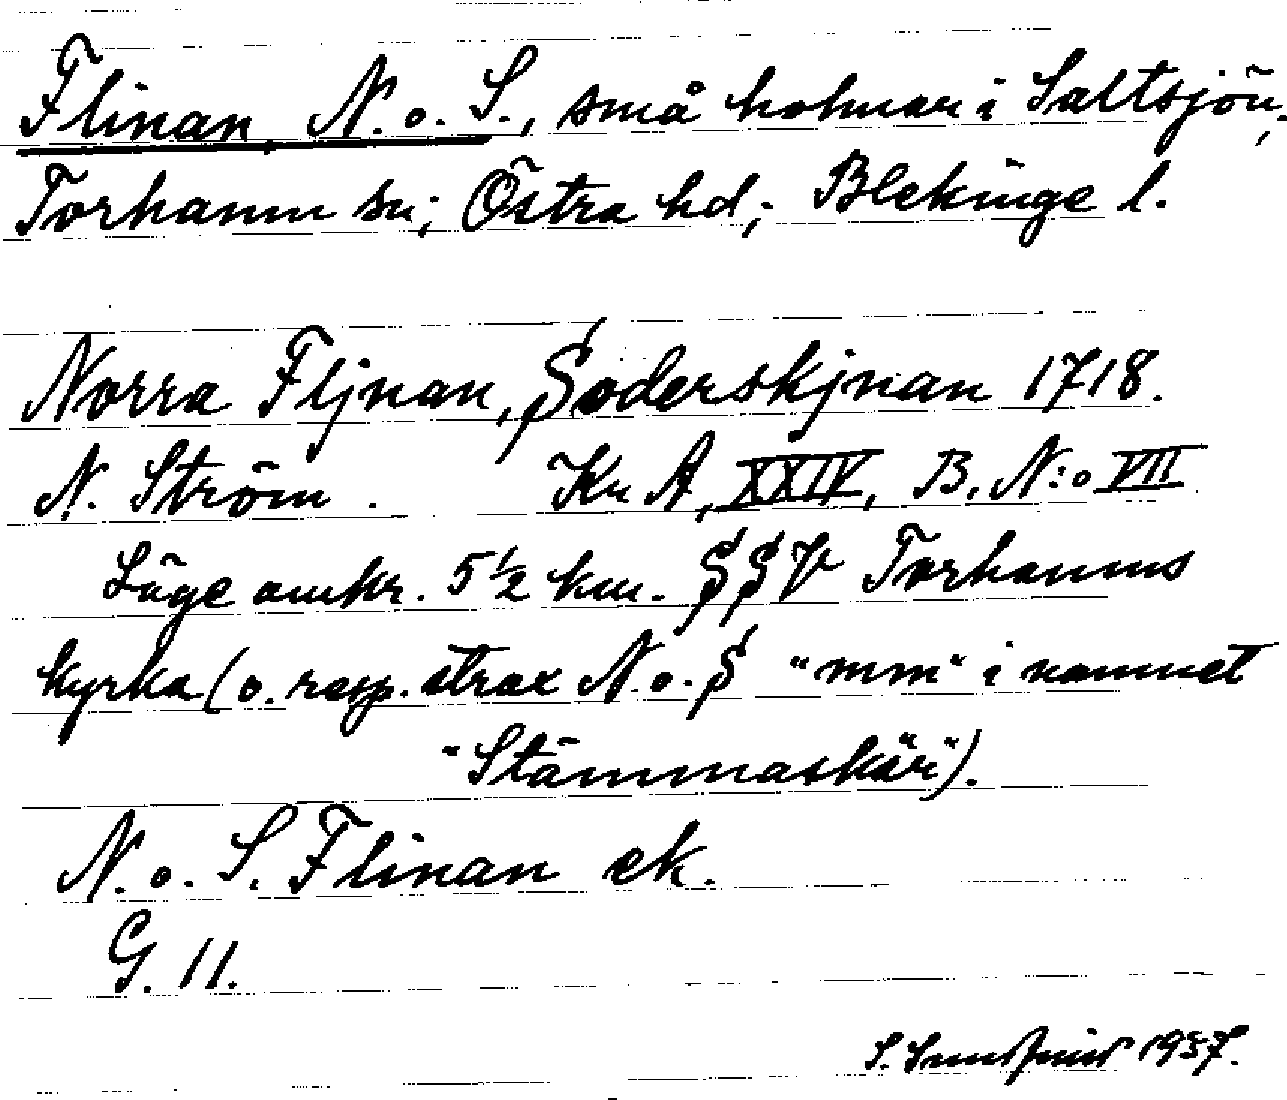 Flinan N. o. S., små holmar i Saltsjön,
Torhamn sn; Östra hd; Blekinge l.
Norra Fljnan, Söderskjnan 1718.
N. Ström. Kr A, XXIV, B. N:o VII
Läge omkr. 5 1/2 km. SSV Torhamns
kyrka (o. resp. strax N. o. S "mm" i namnet
"Stämmaskär").
N. o. S. Flinan ek.
G. 11.
S. 1957.